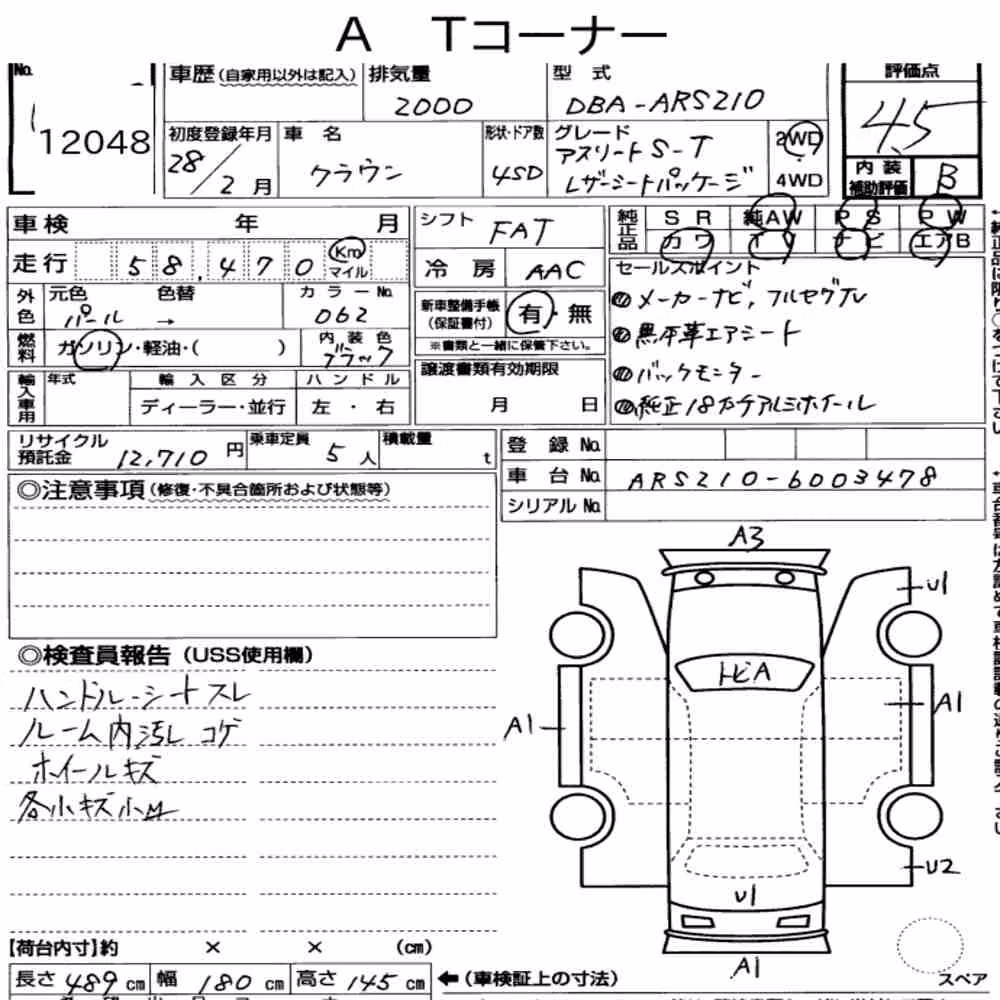 A Tコーナー
No. 12048
車歴 (自家用以外は記入) 排気量 2000 型式 DBA-ARS210 評価点 4.5
初度登録年月 28/2月 車名 クラウン 形状・ドア数 4SD グレード アスリートS-T レザーシートパッケージ 2WD 4WD
内装補助評価 B
車検 年 月 シフト FAT 純正品 SR 純AW PS PW
カワ TV ナビ エアB
走行 58,470 Km マイル 冷房 AAC
セールスポイント
メーカーナビ, フルセグTV
黒本革エアシート
バックモニター
純正18インチアルミホイール
外色 元色 パール 色替 → カラーNo. 062 新車整備手帳 (保証書付) 有・無
※書類と一緒に保管下さい。
燃料 ガソリン・軽油・( ) 内装色 ブラック
譲渡書類有効期限 月 日
輸入車用 年式 輸入区分 ハンドル
ディーラー・並行 左・右
リサイクル預託金 12,710円 乗車定員 5人 積載量 t
登録No.
車台No. ARS210-6003478
シリアルNo.
◎注意事項 (修復・不具合箇所および状態等)
◎検査員報告 (USS使用欄)
ハンドル・シートスレ
ルーム内汚レ コゲ
ホイールキズ
各小キズ小凹
A3
U1
トビA
A1
A1
U2
U1
A1
スペア
【荷台内寸】約 × × (cm)
長さ 489 cm 幅 180 cm 高さ 145 cm ←(車検証上の寸法)